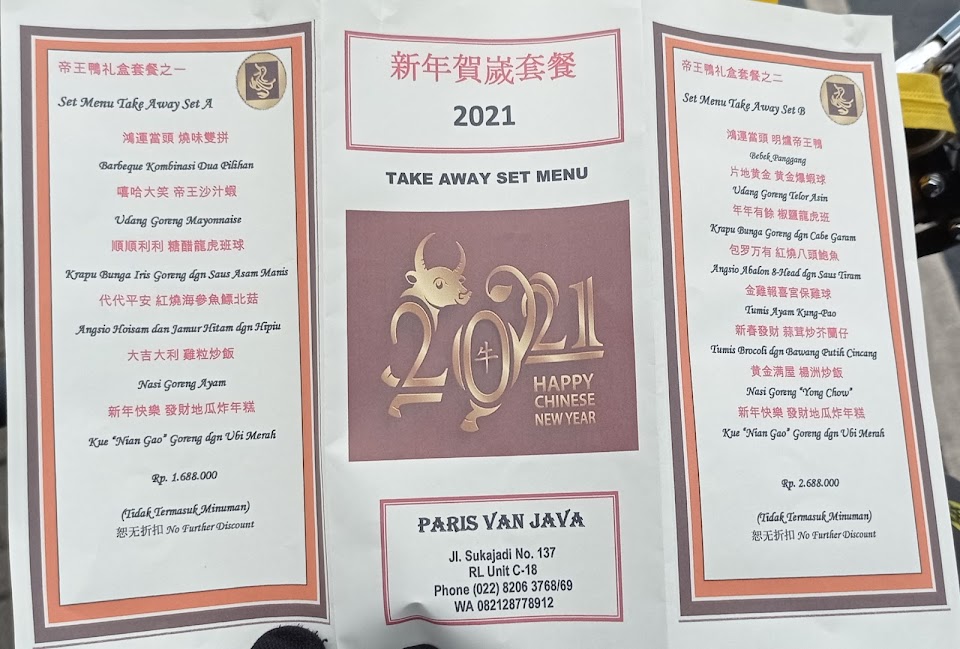 帝王鴨礼盒套餐之一
Set Menu Take Away Set A
鴻運當頭 燒味雙拼
Barbeque Kombinasi Dua Pilihan
嘻哈大笑 帝王沙汁蝦
Udang Goreng Mayonnaise
順順利利 糖醋龍虎班球
Krapu Bunga Iris Goreng dgn Saus Asam Manis
代代平安 紅燒海參魚鰾北菇
Angsio Hoisam dan Jamur Hitam dgn Hipiu
大吉大利 雞粒炒飯
Nasi Goreng Ayam
新年快樂 發財地瓜炸年糕
Kue "Nian Gao" Goreng dgn Ubi Merah
Rp. 1.688.000
(Tidak Termasuk Minuman)
恕无折扣 No Further Discount
新年賀嵗套餐
2021
TAKE AWAY SET MENU
2021
牛
HAPPY
CHINESE
NEW YEAR
PARIS VAN JAVA
Jl. Sukajadi No. 137
RL Unit C-18
Phone (022) 8206 3768/69
WA 082128778912
帝王鴨礼盒套餐之二
Set Menu Take Away Set B
鴻運當頭 明爐帝王鴨
Bebek Panggang
片地黄金 黄金爆蝦球
Udang Goreng Telor Asin
年年有餘 椒鹽龍虎班
Krapu Bunga Goreng dgn Cabe Garam
包罗万有 紅燒八頭鮑魚
Angsio Abalon 8-Head dgn Saus Tiram
金雞報喜宮保雞球
Tumis Ayam Kung-Pao
新春發財 蒜茸炒芥蘭仔
Tumis Brocoli dgn Bawang Putih Cincang
黄金满屋 楊洲炒飯
Nasi Goreng "Yong Chow"
新年快樂 發財地瓜炸年糕
Kue "Nian Gao" Goreng dgn Ubi Merah
Rp. 2.688.000
(Tidak Termasuk Minuman)
恕无折扣 No Further Discount